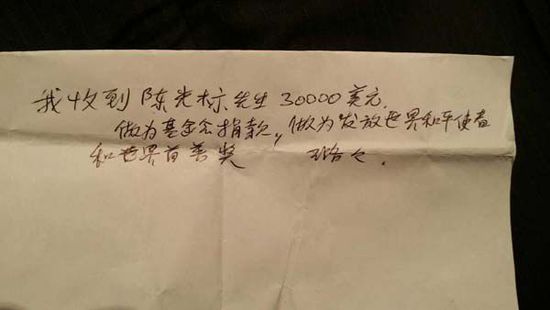 我收到陈光标先生 30000 美元.
做为基金会捐款,, 做为发放世界和平使者
和世界首善奖 璐々.